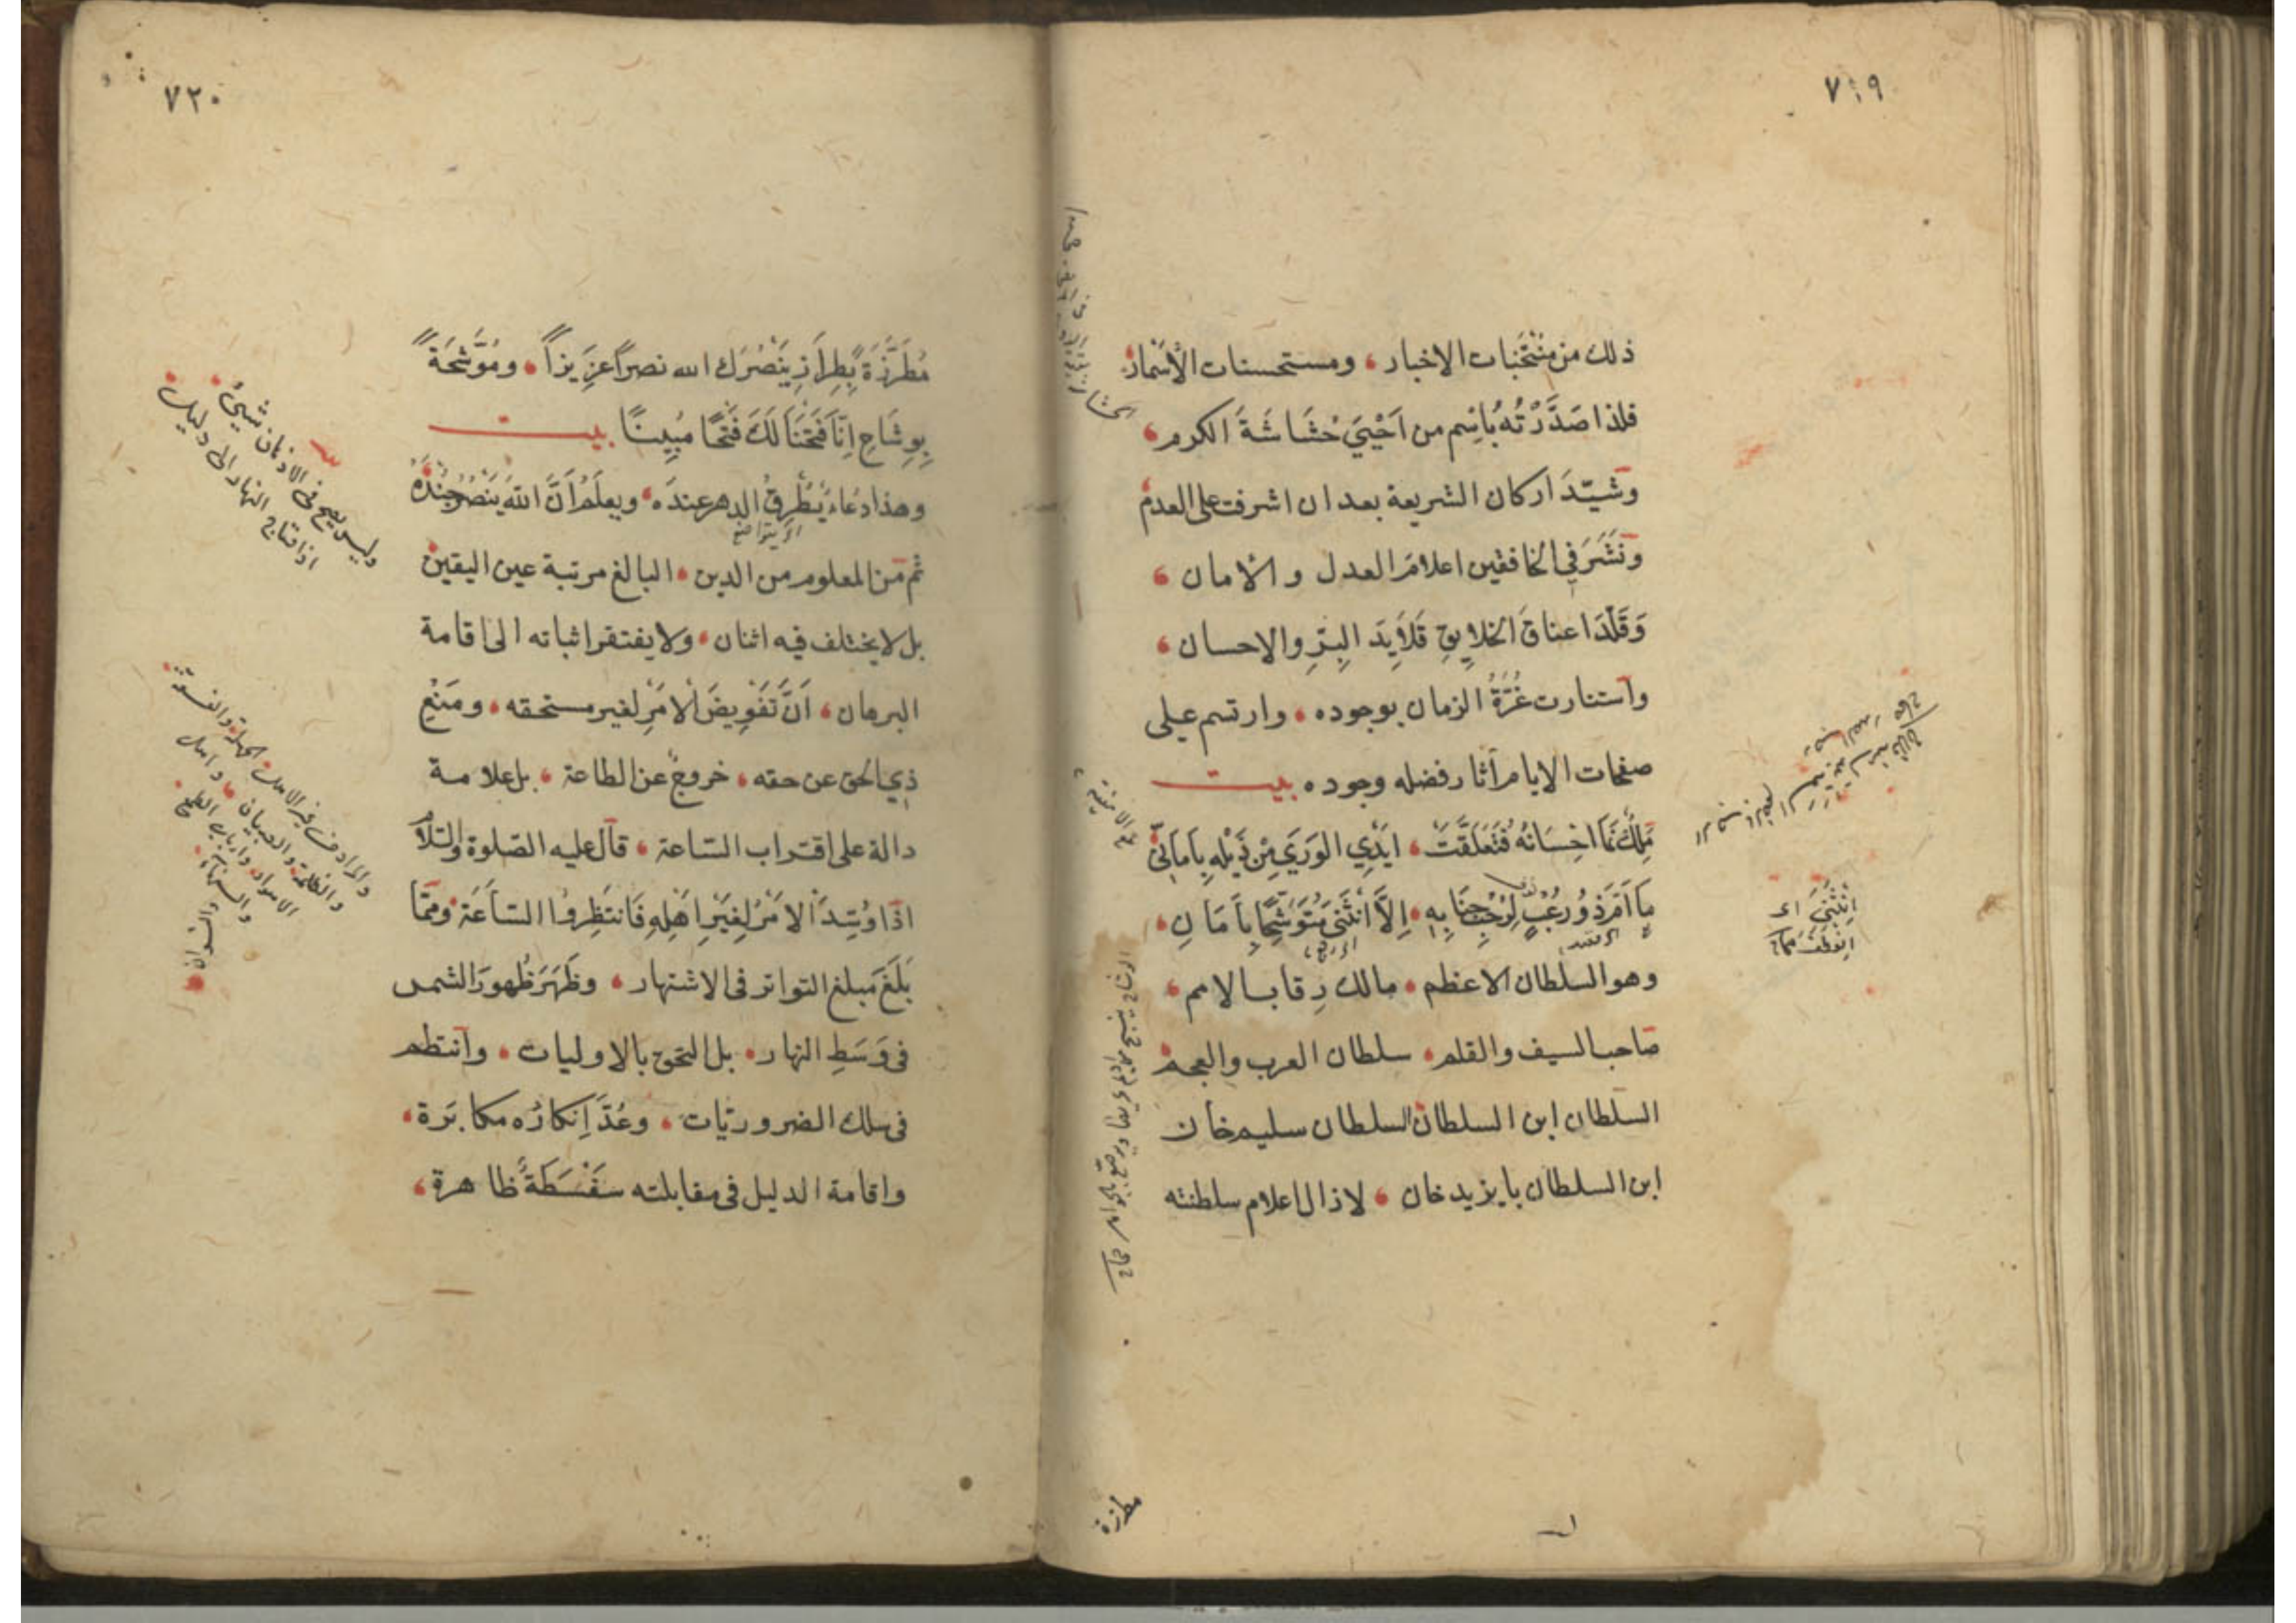 ٧١٩
ذلك من منتخبات الاخبار، ومستحسنات الأسمار
فلذا صَدَّرْتُهُ بُاسِم من اَحْيَيَ حُشَاشَةَ الكرم،
وشَيّدَ اركان الشريعة بعد ان اشرفت على العدم
ونَشَرَ في الخافقين اعلامَ العدل والأمان،
وَقَلَّدَ اعناقَ الخلايقِ قَلَايِدَ البِرِّ والاحسان،
واستنارت غُرَّةُ الزمان بوجوده، وارتسم على
صفحات الايام آثار فضله وجوده بيت
مَلِكٌ نَمَا اِحْسَانُهُ فَتَعَلَّقَتْ، اَيْدِي الوَرَي مِنْ ذَيْلِهِ بِاَمَانِيّ
مَا اَمَّ رَذُو رعْبٍ لِرُحْبِ جَنَابِهِ، اِلاَّ انْثَنَى مُتَوَشِّحًا بِاَمَانِ،
اي قصد
وهو السلطان الاعظم، مالك رِقاب الامم،
صاحب السيف والقلم، سلطان العرب والعجم
السلطان ابن السلطان السلطان سليم خان
ابن السلطان بايزيد خان، لازال اعلام سلطنته
اِنْثَنَى اي
اِنعطف صحاح
مطرزة
٧٢٠
مُطَرَّزَةً بِطِرَازِ يَنْصُرَك الله نصراً عزِيزاً، ومُوَشَّحَةً
بِوِشَاحِ اِنَّا فَتَحْنَا لَكَ فَتْحًا مُبِينًا بيت
وهذا دُعَاء يُطْرِقُ الدهر عندَه، ويعلَمُ اَنَّ اللهَ يَنْصُرُ جُنْدَهُ
اي يتواضع
ثم من المعلوم من الدين، البالغ مرتبة عين اليقين
بل لا يختلف فيه اثنان، ولا يفتقر اثباته الى اقامة
البرهان، اَنَّ تَفْوِيضَ الامْرِ لغير مستحقه، ومَنْعَ
ذِي الحق عن حقه، خروجٌ عن الطاعة، بل علامة
دالة على اقتراب السّاعة، قال عليه الصّلوة والسّلام
اذا وُسِّدَ الامْرُ لِغَيْرِ اَهْلِهِ فَانتَظِرُوا السَّاعَةَ ومَمّا
بَلَغَ مَبلغ التواتر فى الاشتهار، وظَهَرَ ظُهورَ الشمس
فى وَسَطِ النهار، بل التحق بالاوليات، وانتظم
فى سلك الضروريّات، وعُدَّ اِنكارُه مكابَرة،
واقامة الدليل فى مقابلته سَفْسَطَةً ظاهرة،
وليس يصح فى الاذهان شيئ
اذا احتاج النهار الى دليل
والمراد من غير الاهل، الجهلة والفسقة
والظلمة، والصبيان، واهل
الاهواء، وارباب الطمع،
والسفهاء،
والنسوان